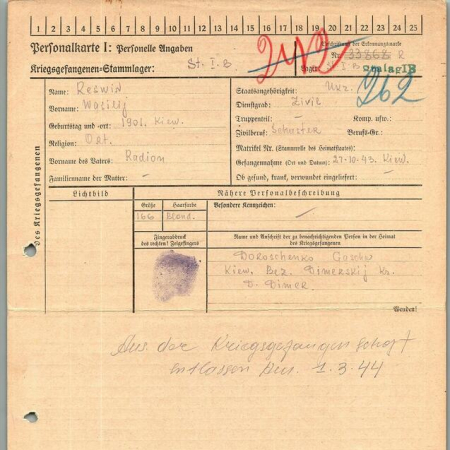 1 2 3 4 5 6 7 8 9 10 11 12 13 14 15 16 17 18 19 20 21 22 23 24 25
Personalkarte I: Personelle Angaben
Kriegsgefangenen-Stammlager: St. I. B.
Beschriftung der Erkennungsmarke
Nr. 33868 R
Lager: St. I B
Stalag IB
262
Des Kriegsgefangenen
Name: Reswin
Vorname: Wasilij
Geburtstag und -ort: 1901. Kiew.
Religion: Ort.
Vorname des Vaters: Radion
Familienname der Mutter: —
Staatsangehörigkeit: Ukr.
Dienstgrad: Zivil
Truppenteil: — Komp. usw.:
Zivilberuf: Schuster Berufs-Gr.:
Matrikel Nr. (Stammrolle des Heimatstaates):
Gefangennahme (Ort und Datum): 27.10.43. Kiew.
Ob gesund, krank, verwundet eingeliefert: —
Lichtbild
Nähere Personalbeschreibung
Größe Haarfarbe Besondere Kennzeichen: —
166 Blond.
Fingerabdruck
des rechten! Zeigefingers
Name und Anschrift der zu benachrichtigenden Person in der Heimat
des Kriegsgefangenen
Doroschenko
Kiew. Bez. Dimerskij
D. Dimer.
Wenden!
Aus der Kriegsgefangenschaft
entlassen den. 1.3.44